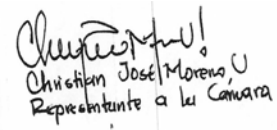 Christian José Moreno U
Representante a la Cámara